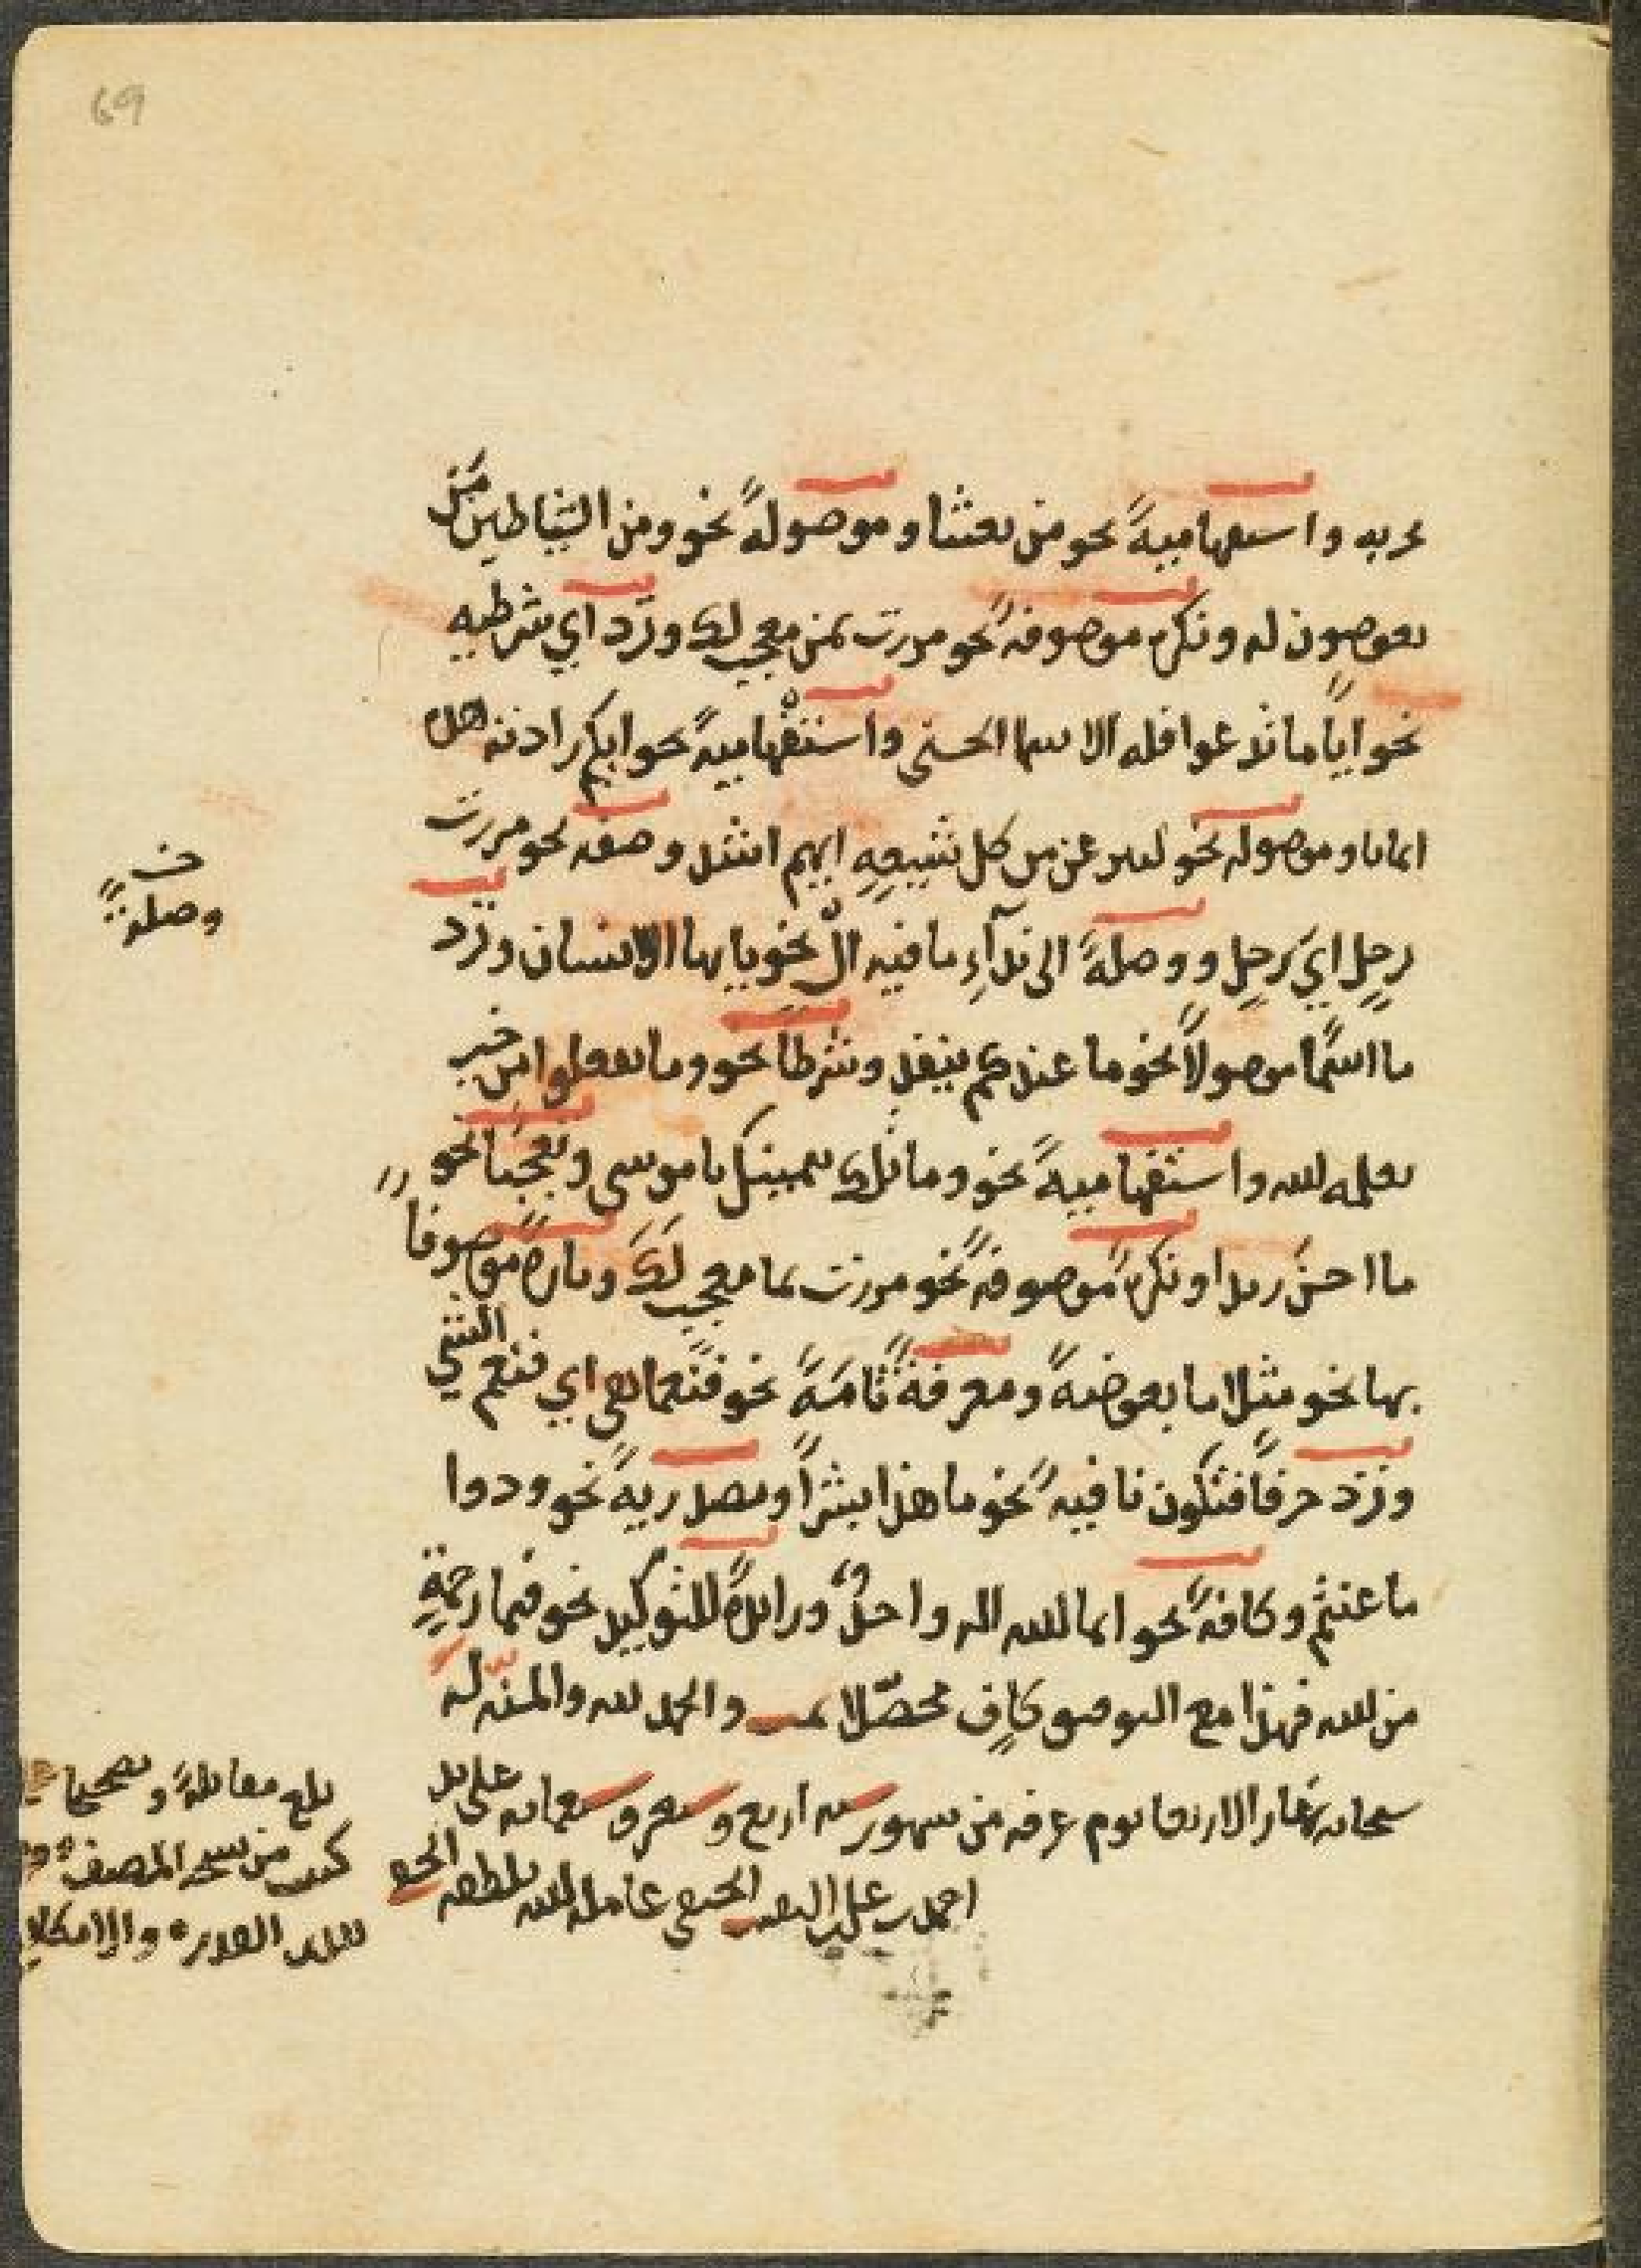 69
يجز به واستفهامية نحو من بعثنا وموصولةً نحو ومن الشياطين مَن
يغوصون له ونكرة موصوفة نحو مررت بمن معجب لك وترد اي شرطيه
نحو ايًا ما تدعوا فله الاسما الحسنى واستفهاميةً نحو ايكم زادته هذه
ايمانا وموصوله نحو لننزعن من كل شيعةٍ ايهم اشد وصفه نحو مررت
برجلٍ ايِّ رجلٍ ووصلةً الى ندآءِ ما فيه الْ نحو يا يها الانسان وترد
ما اسمًا موصولاً نحو ما عندكم ينفد وشرطًا نحو وما تفعلوا من خير
يعلمه الله واستفهاميةً نحو وما تلك بيمينك يا موسى وتعجبًا نحو
ما احسنَ زيدا ونكرةً موصوفةً نحو مررت بما معجب لَكَ ونكرةً موصوفًا
بها نحو مثلا ما بعوضةً ومعرفةً تامَةً نحو فنعما هي اي فنعم الشي
وترد حرفًا فتكون نافيةً نحو ما هذا بشرًا ومصدريةً نحو ودوا
ما عنتم وكافةً نحو انما الله اله واحدٌ وزائدةً للتوكيد نحو فبما رحمةٍ
من الله فهذا مع التوفيق كافٍ محصّلا تمـــت والحمد لله والمنّه لهُ
سبحانه نهار الاربعا يوم عرفه من شهور سنه اربع وسبعمايه على يد
احمد بن علي الحنفي عامله الله بلطفه الخفي
خـ
وصلة
بلغ مقابلةً وتصحيحا
كتبت من نسخة المصنف
والامكان